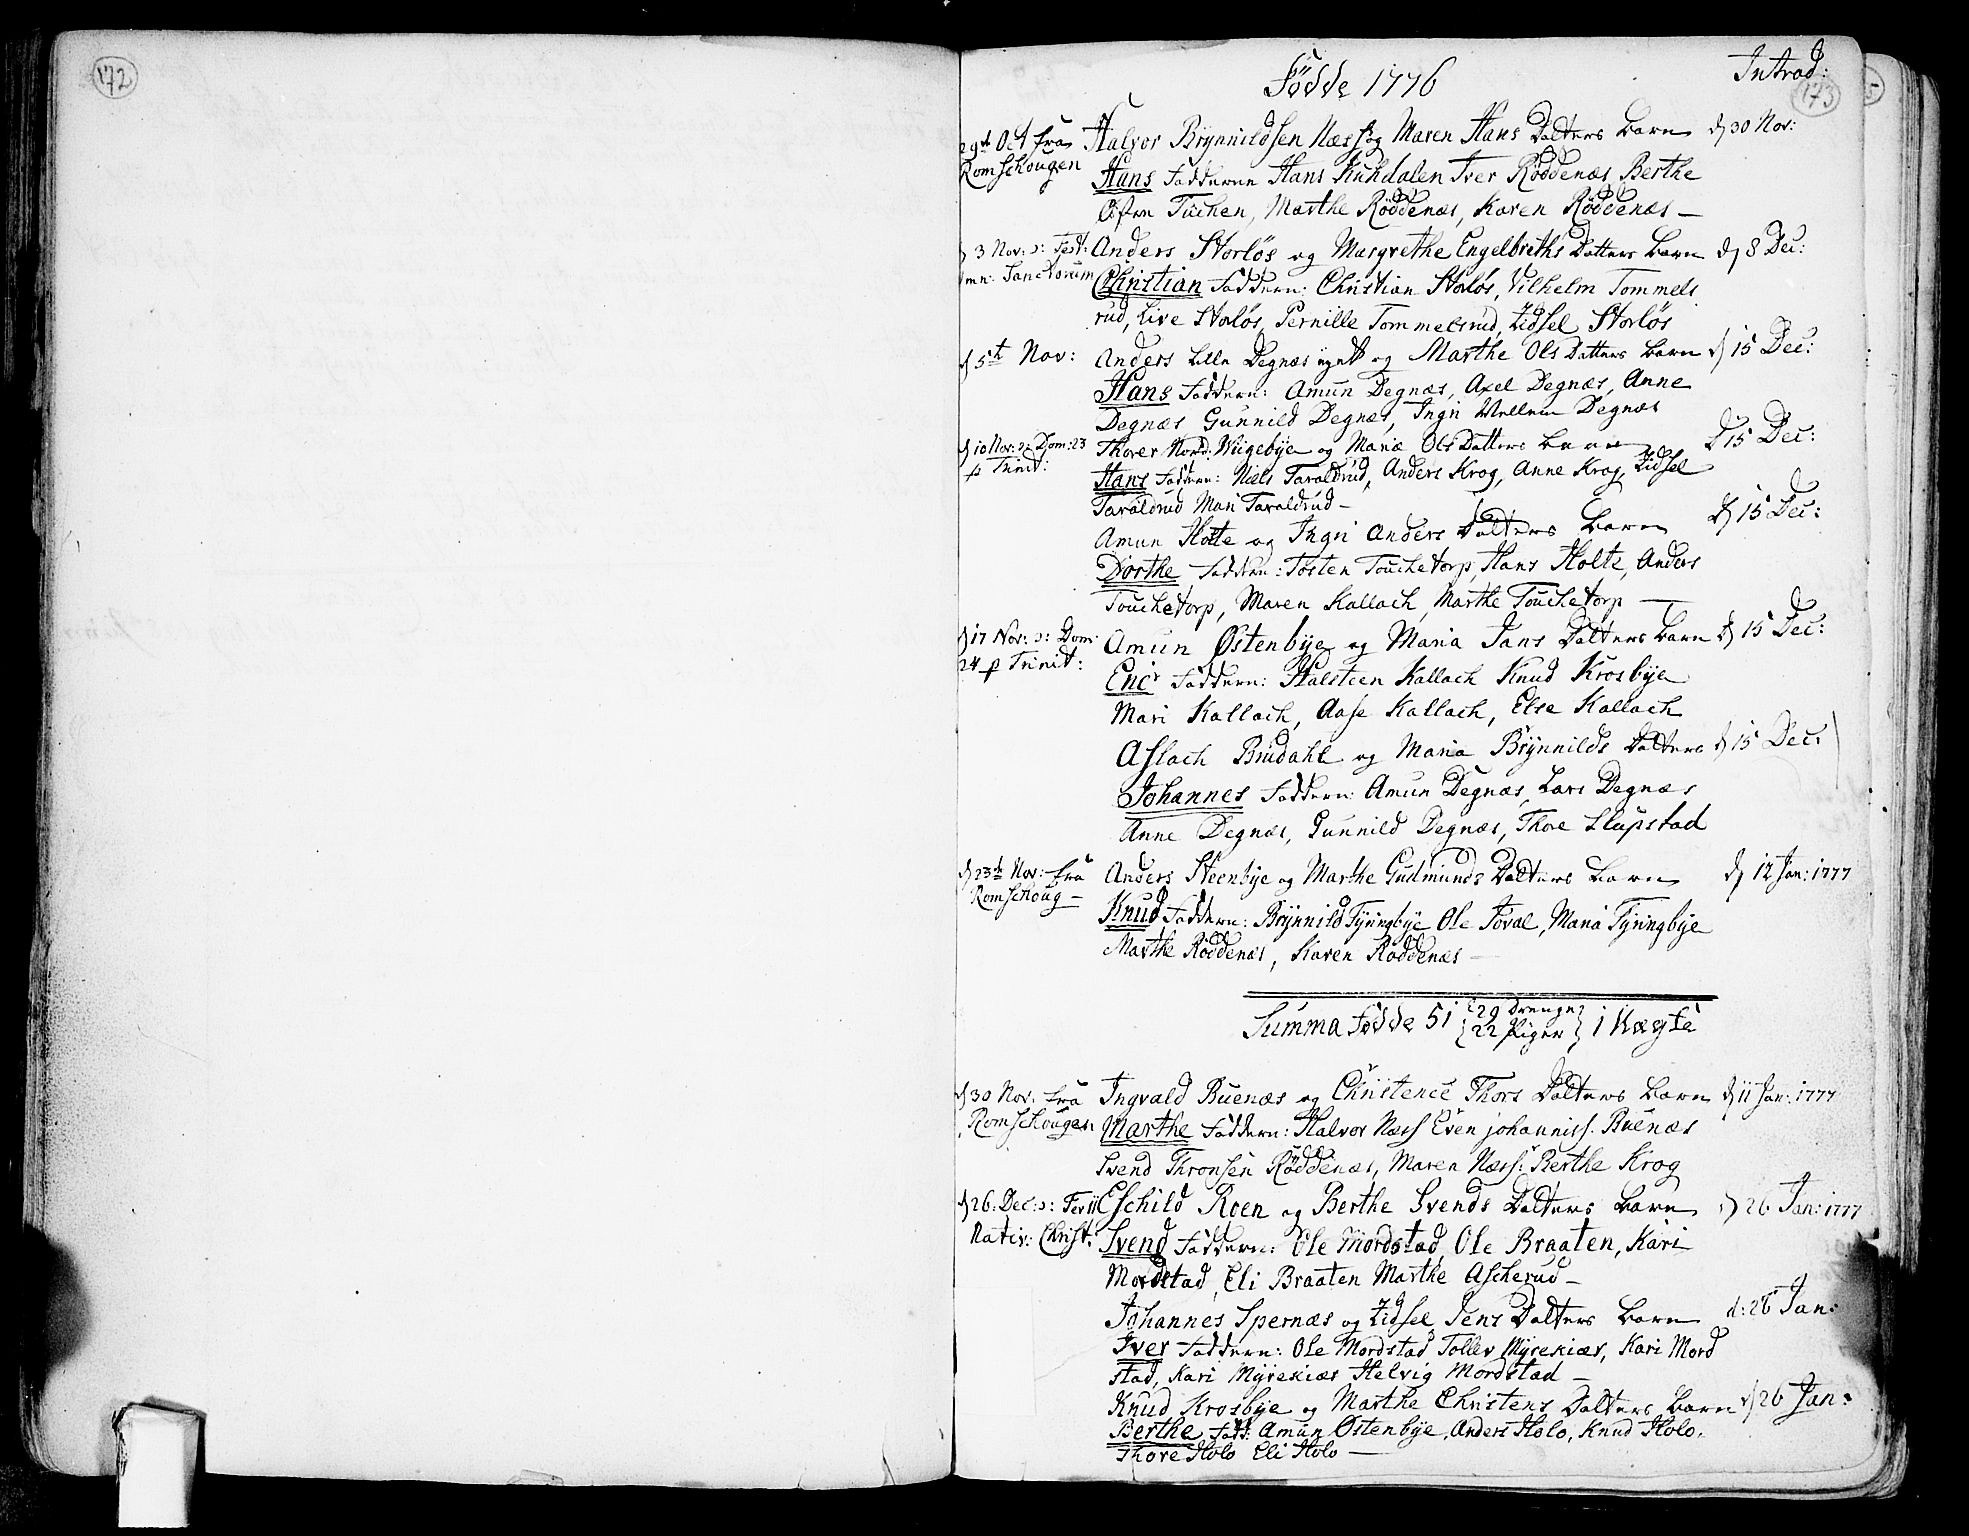 172
Födde 1776 Introd:
173
29de Oct fra Halvor Brynnildsen Næss og Maren Hans Datters barn d 30 Nov:
Romschougen Hans Faddere Hans Kuhdalen Iver Röddenæs Berthe
Tuchen, Marthe Röddenæs, Karen Röddenæs —
d 3 Nov: ɔ: Fest: Anders Storløs og Margrethe Engelbreths Datters barn d 8 Dec:
Omn: Sanctorum Christian Faddere: Christian Storløs, Vilhelm Tommels
rud, Live Storløs, Pernille Tommelsrud, Zidsel Storløs
d 5te Nov: Anders Lille Degnæs og Marthe Ols Datters barn d 15 Dec:
Hans Faddere: Amun Degnæs, Axel Degnæs, Anne
Degnæs Gunnild Degnæs, Ingri Mellem Degnæs
d 10 Nov: ɔ: Dom: 23 Thorer Nord: Wiigebye og Mariæ Ols Datters barn d 15 Dec:
p Trinit: Hans Faddere: Niels Taraldrud, Anders Krog, Anne Krog, Zidsel
Taraldrud Mari Taraldrud —
Amun Holte og Ingri Anders Datters barn d 15 Dec:
Dorthe Faddere: Tosten Touchetorp, Hans Holte, Anders
Touchetorp, Maren Kallach, Marthe Touchetorp —
d 17 Nov: ɔ: Dom: Amun Østenbye og Maria Jans Datters barn d 15 Dec:
24 p Trinit: Eric Faddere: Halsteen Kallach Knud Krosbye
Mari Kallach, Aase Kallach, Else Kallach
Aslach Brudahl og Maria Brynnilds Datters d 15 Dec:
Johannes Faddere: Amun Degnæs, Lars Degnæs
Anne Degnæs, Gunnild Degnæs, Thore Slupstad
d 23de Nov: fra Anders Steenbye og Marthe Gudmunds Datters barn d 12 Jan: 1777
Romschoug — Knud Faddere: Brynnild Tyringbye Ole Toval, Maria Tyringbye
Marthe Röddenæs, Karen Röddenæs —
Summa Fødde 51 {29 Drenge 22 Piger} 1 Uægte
d 30 Nov: fra Ingvald Buenæs og Christence Thors Datters barn d 11 Jan: 1777
Romschougen Marthe Faddere: Halvor Næss Even Johanniss: Buenæs
Svend Thronsen Röddenæs, Maren Næss: Berthe Krog
d 26 Dec: ɔ: Fer: II Eschild Roen og Berthe Svends Datters barn d 26 Jan: 1777
Nativ: Christ: Svend Faddere: Ole Mordstad, Ole Braaten, Kari
Mordstad, Eli Braaten Marthe Ascherud —
Johannes Spernæs og Zidsel Jens Datters barn d: 26 Jan:
Iver Faddere: Ole Mordstad Tollev Myrekiær, Kari Mord
stad, Kari Myrekiær Helvig Mordstad —
Knud Krosbye og Marthe Christens Datters barn d 26 Jan:
Berthe Fadd: Amun Østenbye, Anders Holo, Knud Holo,
Thore Holo Eli Holo —